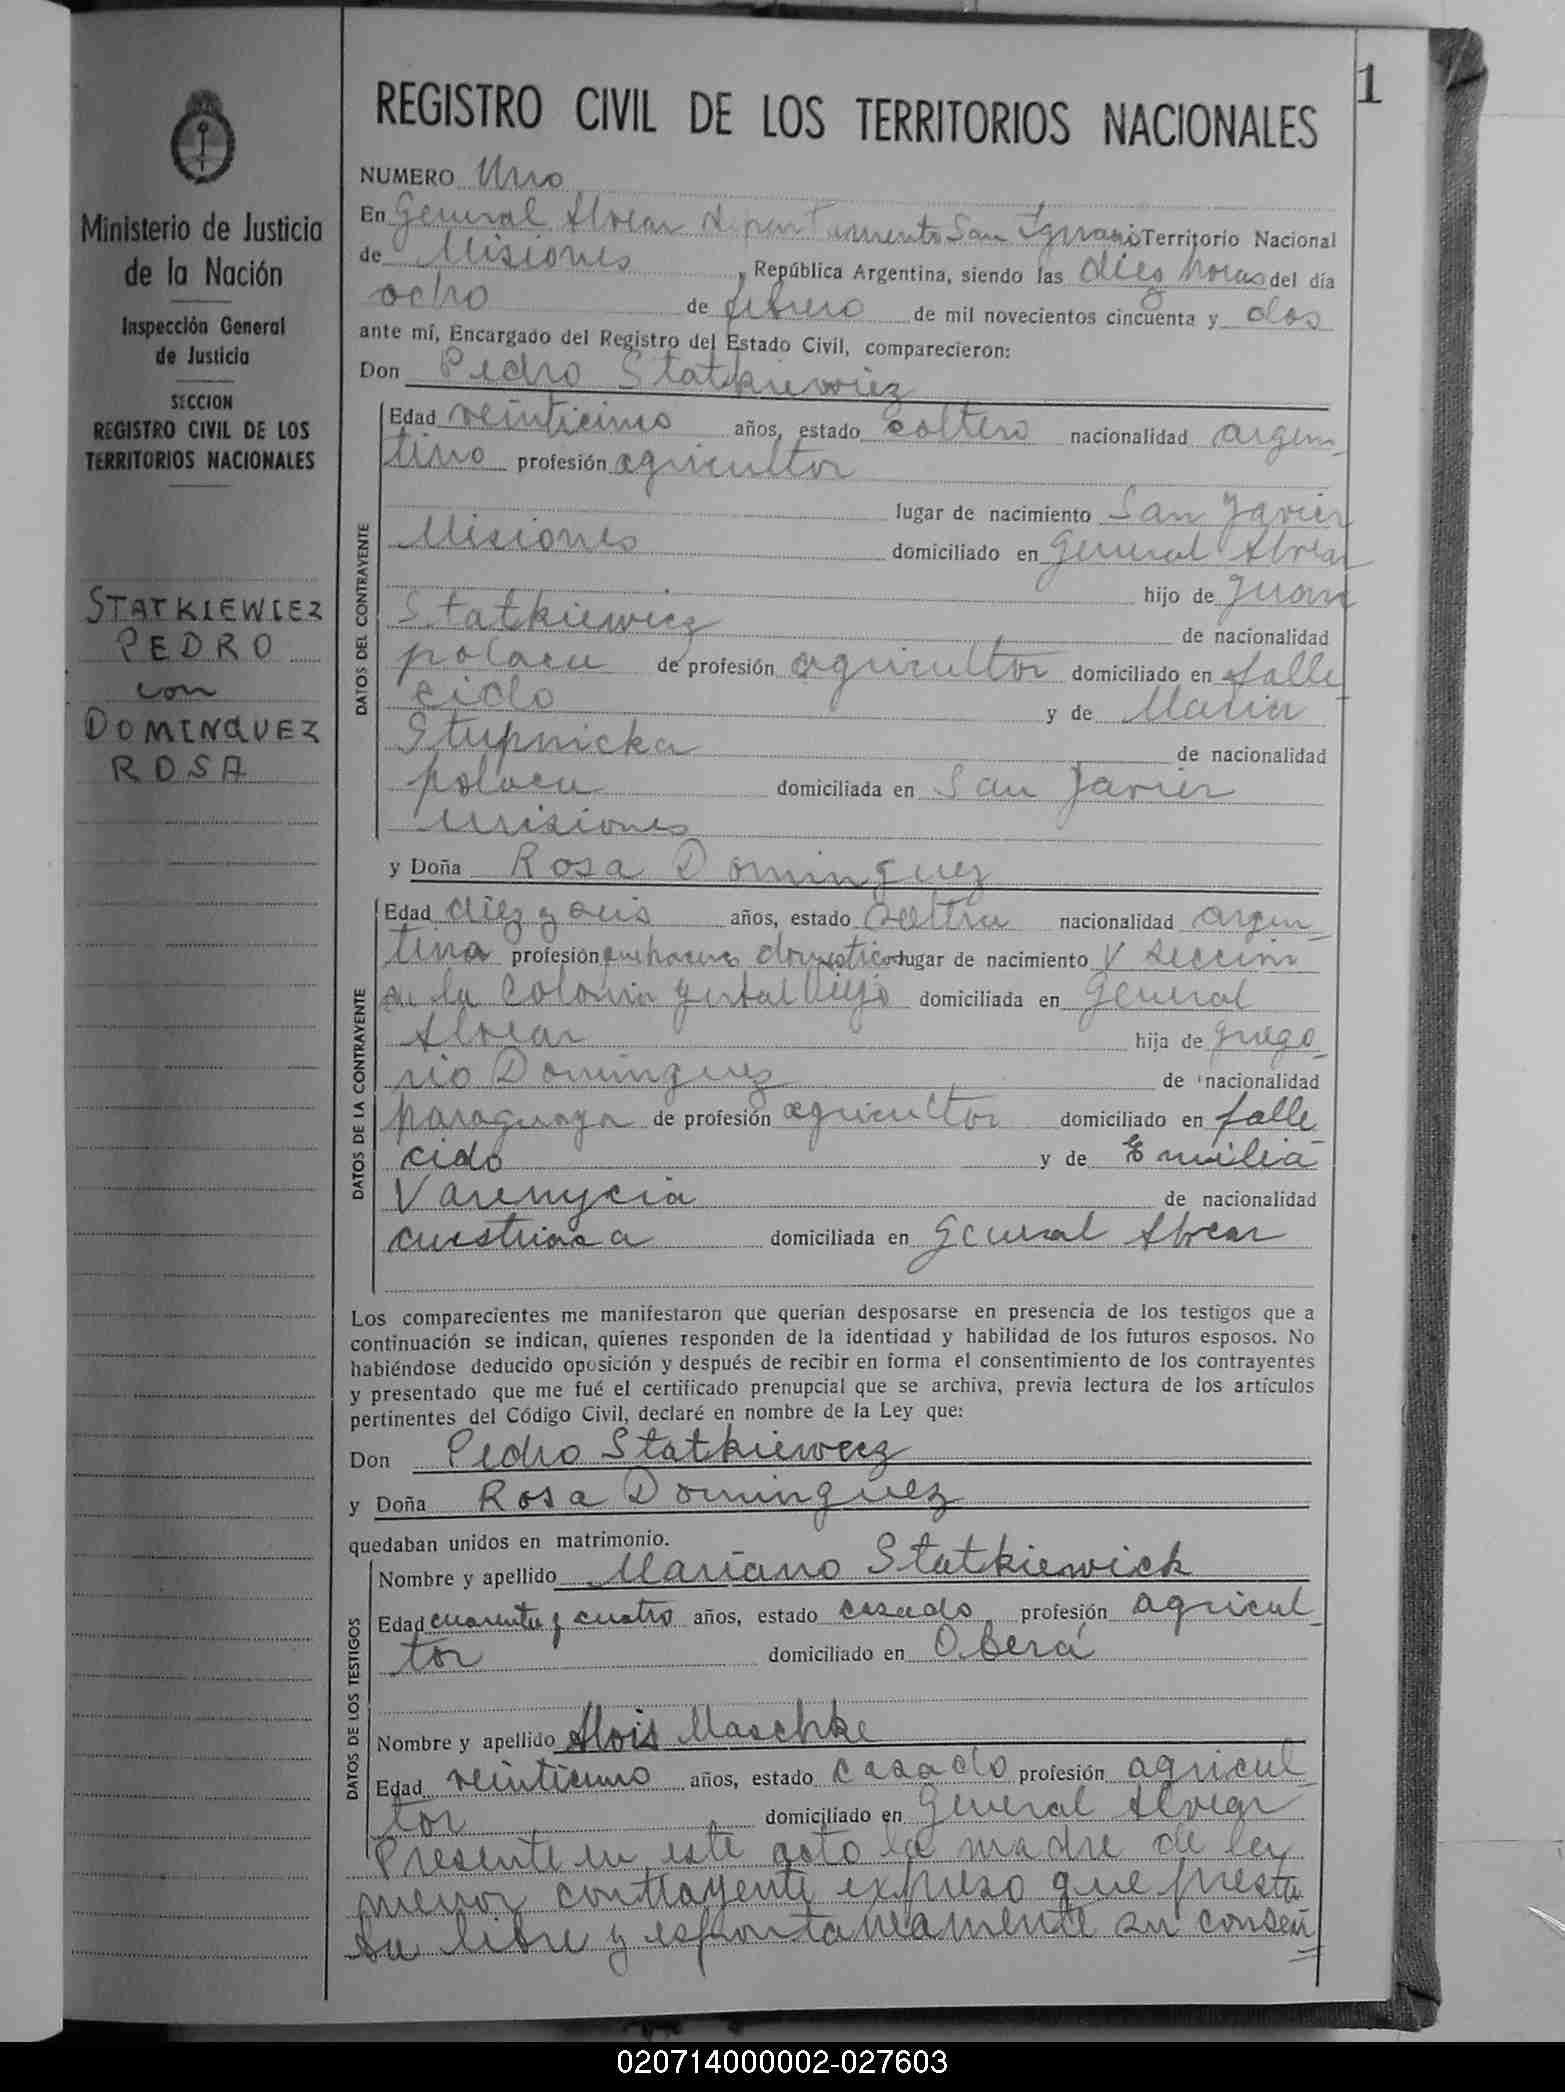 1
REGISTRO CIVIL DE LOS TERRITORIOS NACIONALES
Ministerio de Justicia
de la Nación
Inspección General
de Justicia
SECCION
REGISTRO CIVIL DE LOS
TERRITORIOS NACIONALES
STATKIEWIEZ
PEDRO
con
DOMINQUEZ
ROSA
NUMERO Uno
En General Alvear departamento San Ignacio Territorio Nacional
de Misiones, República Argentina, siendo las diez horas del día
ocho de febrero de mil novecientos cincuenta y dos
ante mí, Encargado del Registro del Estado Civil, comparecieron:
Don Pedro Statkiewiez
DATOS DEL CONTRAYENTE
Edad veinticinco años, estado soltero nacionalidad argen
tino profesión agricultor
lugar de nacimiento San Javier
Misiones domiciliado en General Alvear
hijo de Juan
Statkiewicz de nacionalidad
polaca de profesión agricultor domiciliado en falle
cido y de Maria
Stupnicka de nacionalidad
polaca domiciliada en San Javier
Misiones
y Doña Rosa Dominguez
DATOS DE LA CONTRAYENTE
Edad diez y seis años, estado soltera nacionalidad argen
tina profesión quehaceres domesticos lugar de nacimiento V Seccion
de la Colonia Yerbal Viejo domiciliada en General
Alvear hija de Grego
rio Dominguez de nacionalidad
paraguaya de profesión agricultor domiciliado en falle
cido y de Emilia
Varenycia de nacionalidad
austriaca domiciliada en General Alvear
Los comparecientes me manifestaron que querían desposarse en presencia de los testigos que a
continuación se indican, quienes responden de la identidad y habilidad de los futuros esposos. No
habiéndose deducido oposición y después de recibir en forma el consentimiento de los contrayentes
y presentado que me fué el certificado prenupcial que se archiva, previa lectura de los artículos
pertinentes del Código Civil, declaré en nombre de la Ley que:
Don Pedro Statkiewiez
y Doña Rosa Dominguez
quedaban unidos en matrimonio.
DATOS DE LOS TESTIGOS
Nombre y apellido Mariano Statkiewick
Edad cuarenta y cuatro años, estado casado profesión agricul
tor domiciliado en Oberá
Nombre y apellido Alois Maschke
Edad veinticinco años, estado casado profesión agricul
tor domiciliado en General Alvear
Presente en este acto la madre de la
menor contrayente expreso que presta
su libre y espontaneamente su consen
020714000002-027603